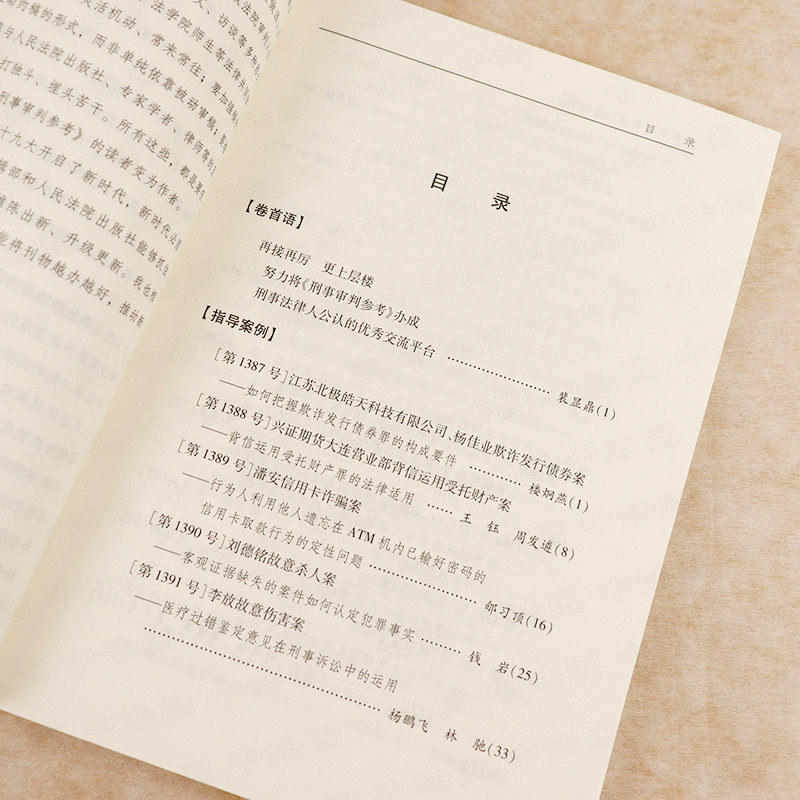 到稿的形式,而非单纯依靠被动审稿;要加强
与人民法院出版社、专家学者、律师等
打独斗、埋头苦干。所有这些,都是要
刑事审判参考》的读者变为作者。
十九大开启了新时代,新时代必
辑部和人民法院出版社能够抓生
推陈出新、升级更新。我也
能将刊物越办越好,推动
目 录
目 录
【卷首语】
再接再厉 更上层楼
努力将《刑事审判参考》办成
刑事法律人公认的优秀交流平台 …………… 裴显鼎(1)
【指导案例】
[第1387号]江苏北极皓天科技有限公司、杨佳业欺诈发行债券案
——如何把握欺诈发行债券罪的构成要件 ………… 楼炯燕(1)
[第1388号]兴证期货大连营业部背信运用受托财产案
——背信运用受托财产罪的法律适用 …… 王 钰 周发遒(8)
[第1389号]潘安信用卡诈骗案
——行为人利用他人遗忘在ATM机内已输好密码的
信用卡取款行为的定性问题 ……………… 邰习顶(16)
[第1390号]刘德铭故意杀人案
——客观证据缺失的案件如何认定犯罪事实 ……… 钱 岩(25)
[第1391号]李放故意伤害案
——医疗过错鉴定意见在刑事诉讼中的运用
…………………………… 杨鹏飞 林 驰(33)
中法图